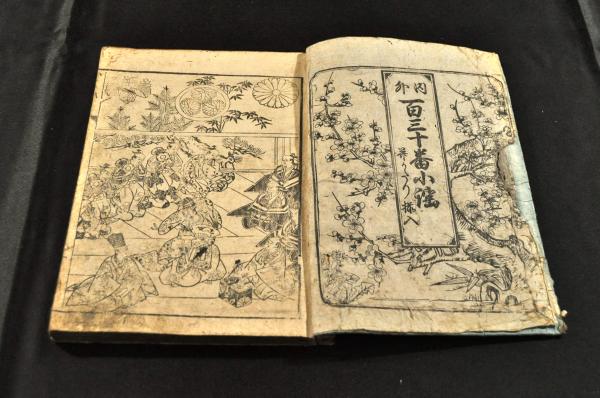 内外
百三十番小謡